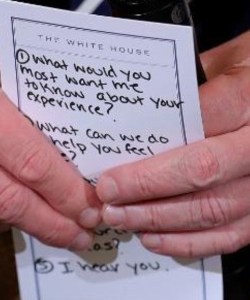 THE WHITE HOUSE
① What would you
most want me
to know about your
experience?
What can we do
help you feel
?
as?
⑤ I hear you.